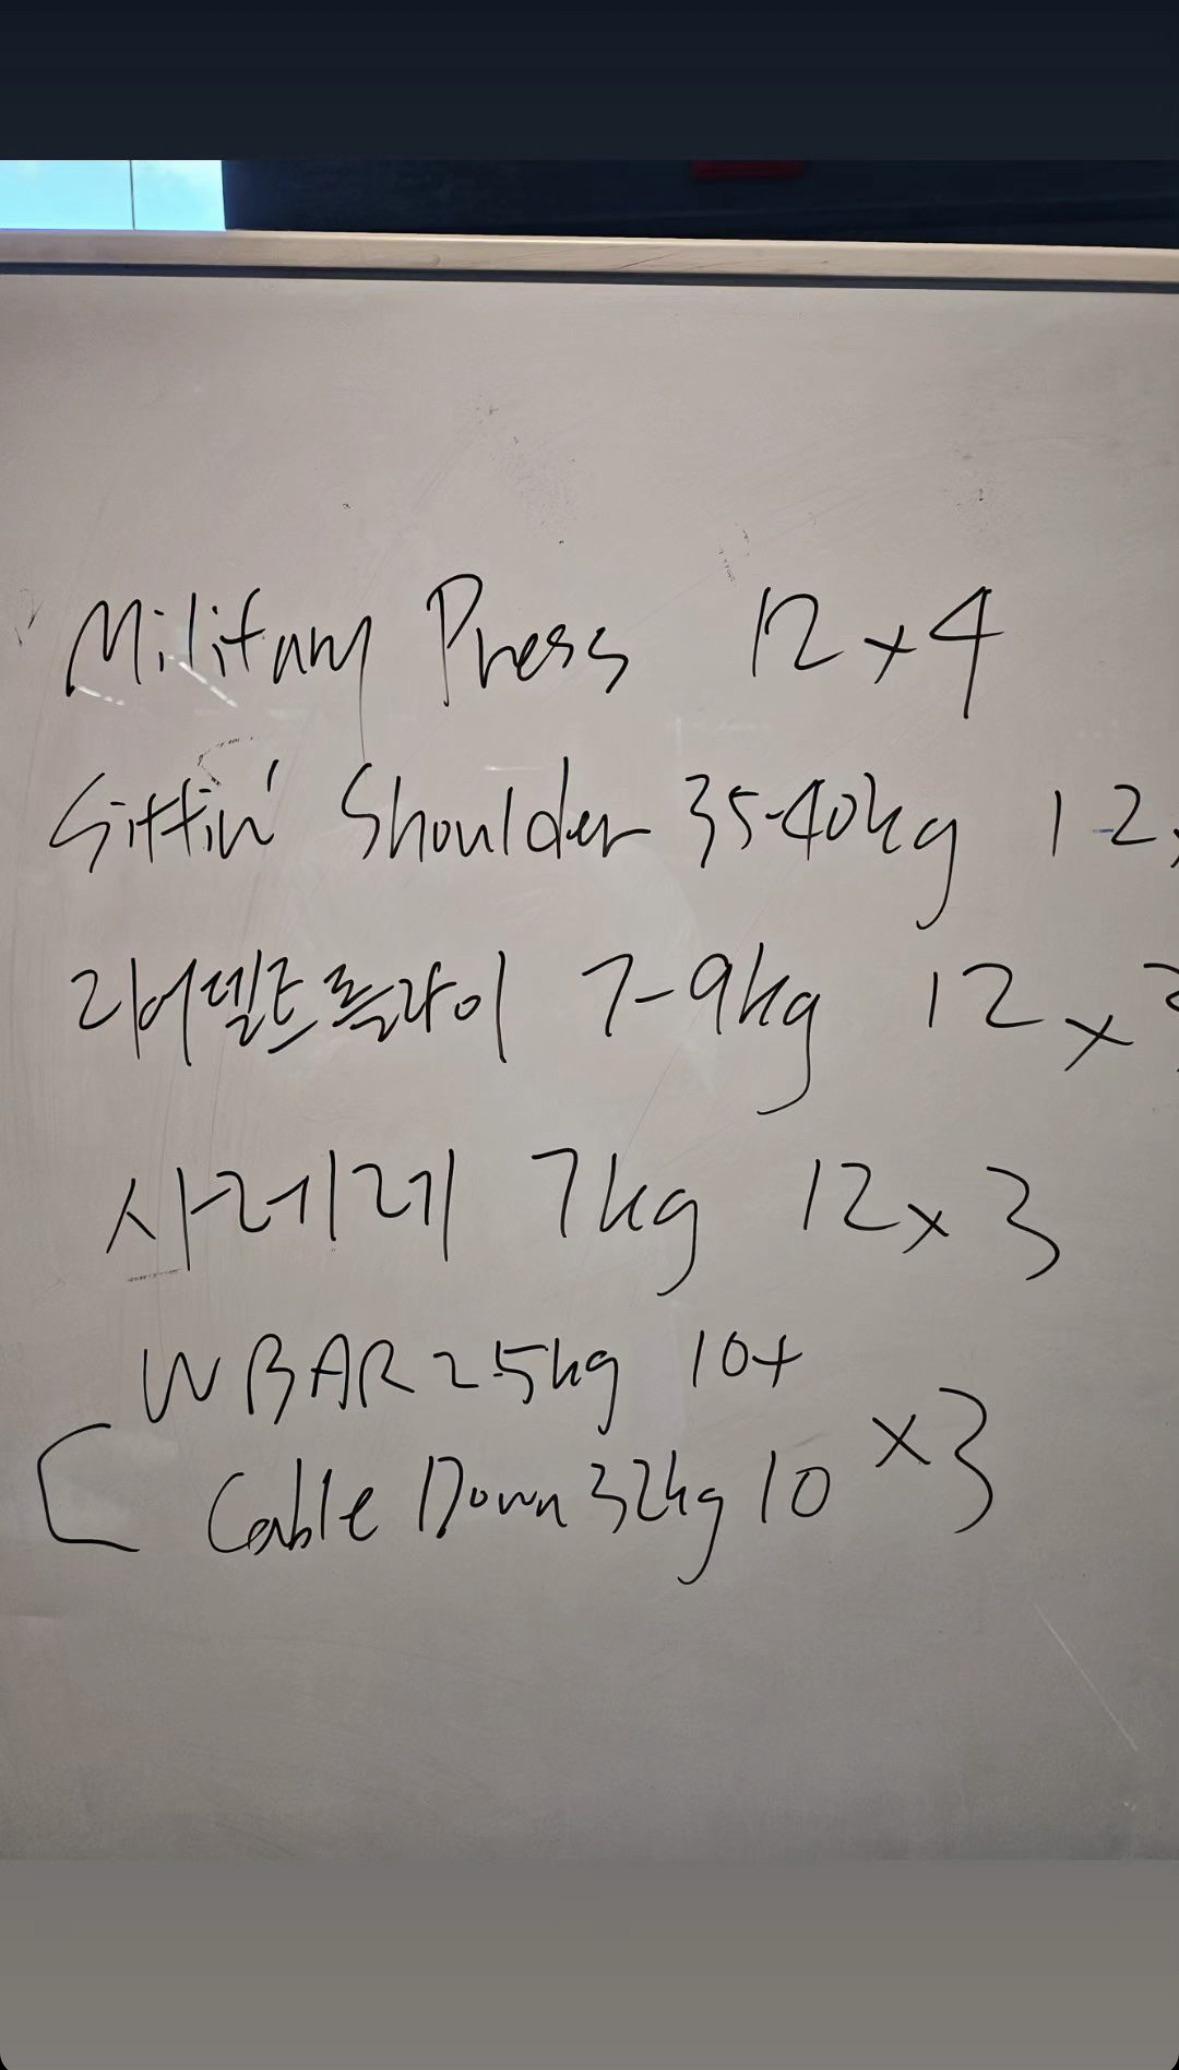 Military Press 12x4
Sittin' Shoulder 35-40kg 12
리어델트플라이 7-9kg 12x
사레레 7kg 12x3
W BAR 25kg 10+
Cable Down 32kg 10 x3